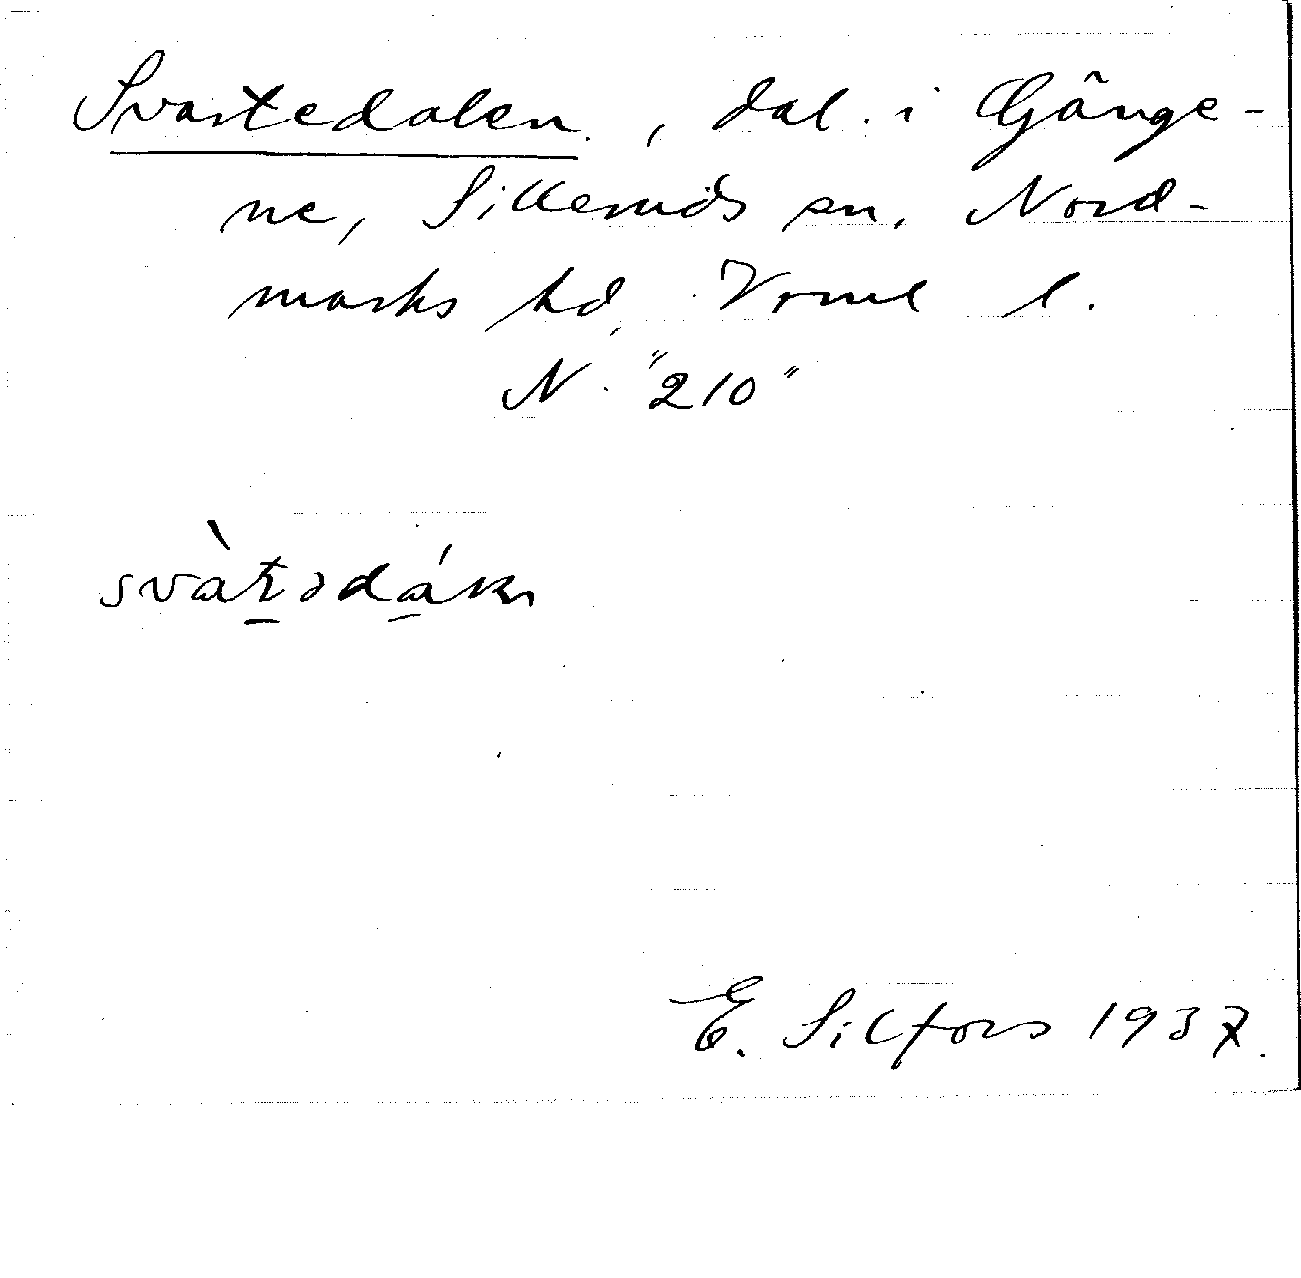 Svartedalen, dal i Gjänge-
ne, Silleruds sn, Nord-
marks hd, Vrml l.
N. "210"
E. Silfors 1937.